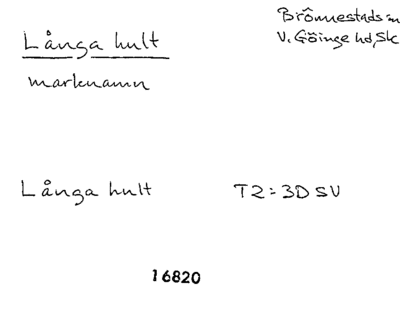 Långa hult
Brönnestads sn
V. Göinge hd, Sk
marknamn
Långa hult T2 = 3D SV
16820